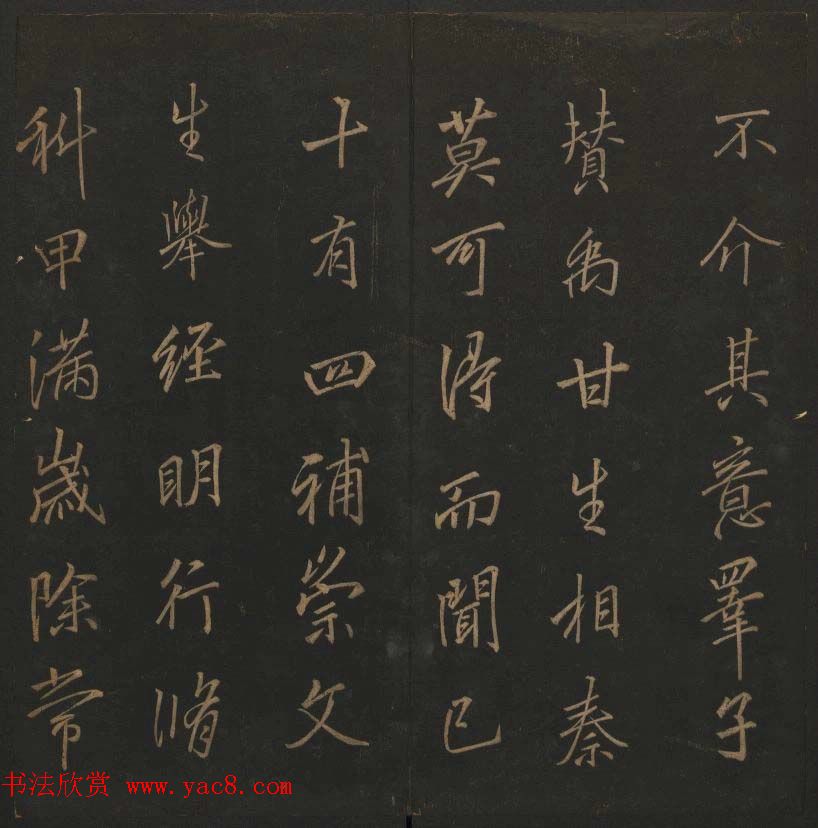 不介其意睪子
賛禹甘生相秦
莫可得而聞已
十有四補崇文
生舉經明行脩
科甲滿歲除常
书法欣赏 www.yac8.com